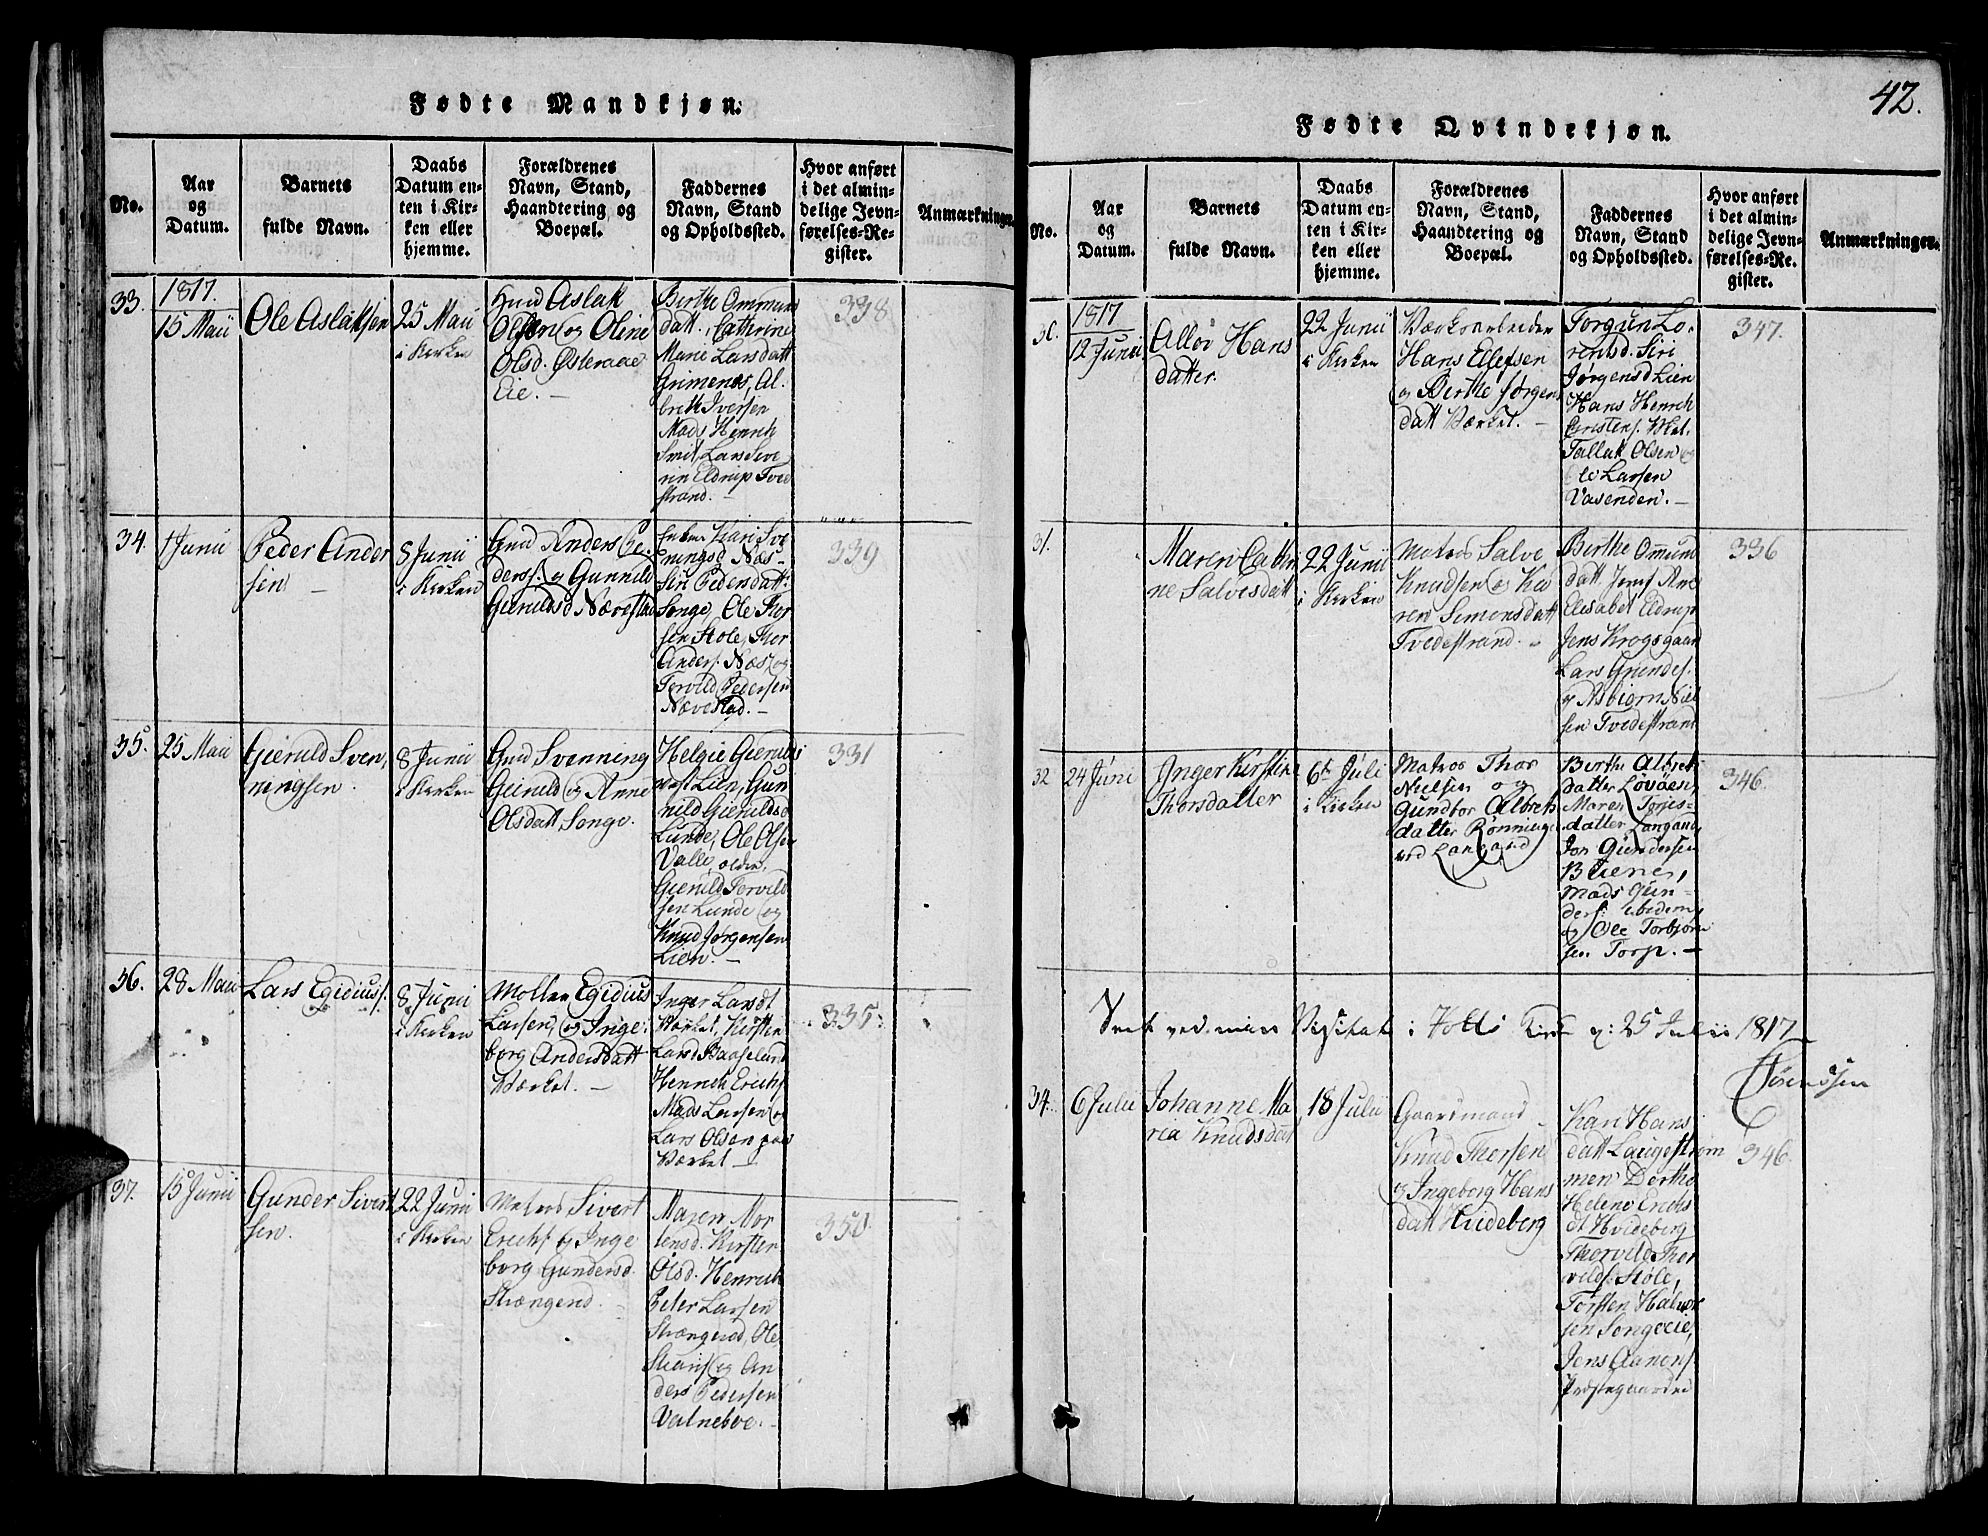 Fødte Mandkjøn.
No.
Aar
og
Datum.
Barnets
fulde Navn.
Daabs
Datum en-
ten i Kir-
ken eller
hjemme.
Forældrenes
Navn, Stand,
Haandtering og
Boepæl.
Faddernes
Navn, Stand
og Opholdssted.
Hvor anført
i det almin-
delige Jevn-
førelses-Re-
gister.
Anmærkninger.
33.
1817.
15 Maii
Ole Aslaksen
25 Maii
i Kirken
Gmd Aslak
Olsen og Oline
Olsd. Østeraae
Eie. -
Birthe Ommun
datt., Cathrine
Marie Larsdatt
Grimenæs, Al-
breth Iversen
Mads Henrich
Smit, Lars Seve
rin Eldrup Tved
strand. -
338
34.
1 Junii
Peder Ander
sen -
8 Junii
i Kirken
Gmd Anders Pe-
ders. og Gunnild
Gierulds d Nævestad
Enken Kari Sve
ningsd Næs-
Siri Pedersdatt
Songe, Ole Thor
sen Hole, Thor
Anders. Næs og
Torvild Pedersen
Nævestad. -
339
35.
25 Maii
Gieruld Sven,
ningsen.
8 Junii
i Kirken
Gmd Svenning
Gieruld og Anne
Olsdatt Songe.
Helgie Gierulds
datt Lien, Gun
nild Gieruldsd
Lunde, Ole Olsen
Valle, 
Gieruld Torvild
sen Lunde og
Knud Jørgensen
Lien. -
331
36.
28 Maii
Lars Egidius.
8 Junii
i Kirken
Møller Egidius
Larsen, og Inge-
borg Andersdatt
Værket. -
Inger Larsdt
Værket, Kirsten
Larsd Baaselund
Henrich Erichs
Mads Larsen og
Lars Olsen paa
Værket -
335
37.
15 Junii
Gunder Sivert
sen.
22 Junii
i Kirken
Matros Sivert
Erichs og Inge
borg Gundersd.
Strængerd.
Maren Mor
tensd. Kirsten
Olsd. Henrich
Peter Larsen
Strængered, Ole
og An
ders Pedersen
Valneboe.
350
42.
Fødte Qvindekjøn.
No.
Aar
og
Datum.
Barnets
fulde Navn.
Daabs
Datum en-
ten i Kir-
ken eller
hjemme.
Forældrenes
Navn, Stand,
Haandtering og
Boepæl.
Faddernes
Navn, Stand
og Opholdssted.
Hvor anført
i det almin-
delige Jevn-
førelses-Re-
gister.
Anmærkninger.
30.
1817
12 Junii
Hans
datter.
22 Junii
i Kirken
Værksarbeider
Hans Ellefsen
og Birthe Jørgens
datt Værket. -
Torgun Lo-
rentsd. Siri
Jørgensd Lien
Hans Henrich
Christens.
Tallak Olsen og
Ole Larsen
Vasenden. -
347.
31.
Maren Cathri
ne Salvesdatt
22 Junii
i Kirken
Matros Salve
Knudsen og Ka
ren Simonsdatt
Tvedestrand. -
Birthe Ommund
datt. Jomf Ane
Elisabet Eldrup
Jens Krogsgaar
Lars 
og Asbiørn Niel
sen Tvedestrand
336
32
24 Juni
Inger Kirstine
Thorsdatter
6te Juli
i Kirken
Matros Thor
Nielsen og
Gundbor Albrets
datter Rønninge
ved Langand
Birthe Albret
datter Løvøen,
Maren Torjes-
datter Langand,
Jon Gundersen
Biene,
Mads Gun-
ders: ibidem,
og Ole Torbjørn
sen Torp. -
346.
Seet ved min Visitats i Holts Kirke d: 25 Julii 1817
Sørenssen
34.
6 Julii
Johanne Ma
rea Knudsdat
18 Julii
Gaardmand
Knud Thorsen
og Ingeborg Hans
datt Hvideberg
Kari Hans
datt Laugestrøm
men Dorthe
Helene Erichs
dt Hvideberg
Thorvild Thor
vilds. Hole,
Torsten Halvor
sen Songeeie,
Jens Aanons.
Præstegaarden
346.